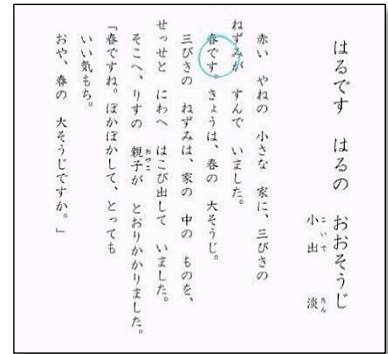 はるです はるの おおそうじ
小出 淡
こいで たん
赤い やねの 小さな 家に、三びきの
ねずみが すんで いました。
春です。きょうは、春の 大そうじ。
三びきの ねずみは、家の 中の ものを、
せっせと にわへ はこび出して いました。
そこへ、りすの 親子が とおりかかりました。
おやこ
「春ですね。ぽかぽかして、とっても
いい気もち。
おや、春の 大そうじですか。」